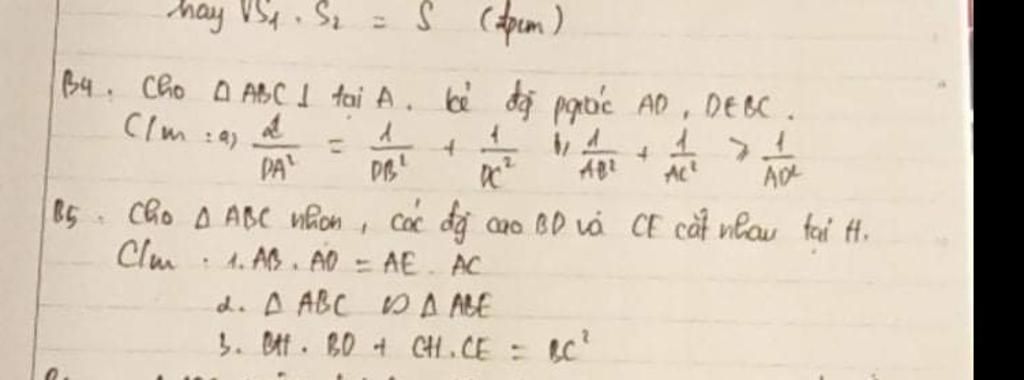 hay √S₁.S₂ = S (đpcm)
B4. Cho Δ ABC ⊥ tại A. kẻ đg pgiác AD, D∈BC.
C/m : a) 2/DA² = 1/DB² + 1/DC² b, 1/AB² + 1/AC² > 1/AD²
B5. Cho Δ ABC nhọn, các đg cao BD và CE cắt nhau tại H.
C/m : 1. AB . AD = AE . AC
2. Δ ABC ∽ Δ ABE
3. BH . BD + CH.CE = BC²